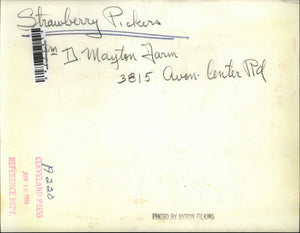 Strawberry Pickers
Wm D. Mayton Farm
3815 Avon Center Rd
P220
CLEVELAND PRESS
JUN 13 1959
REFERENCE DEPT.
PHOTO BY BYRON FILKINS